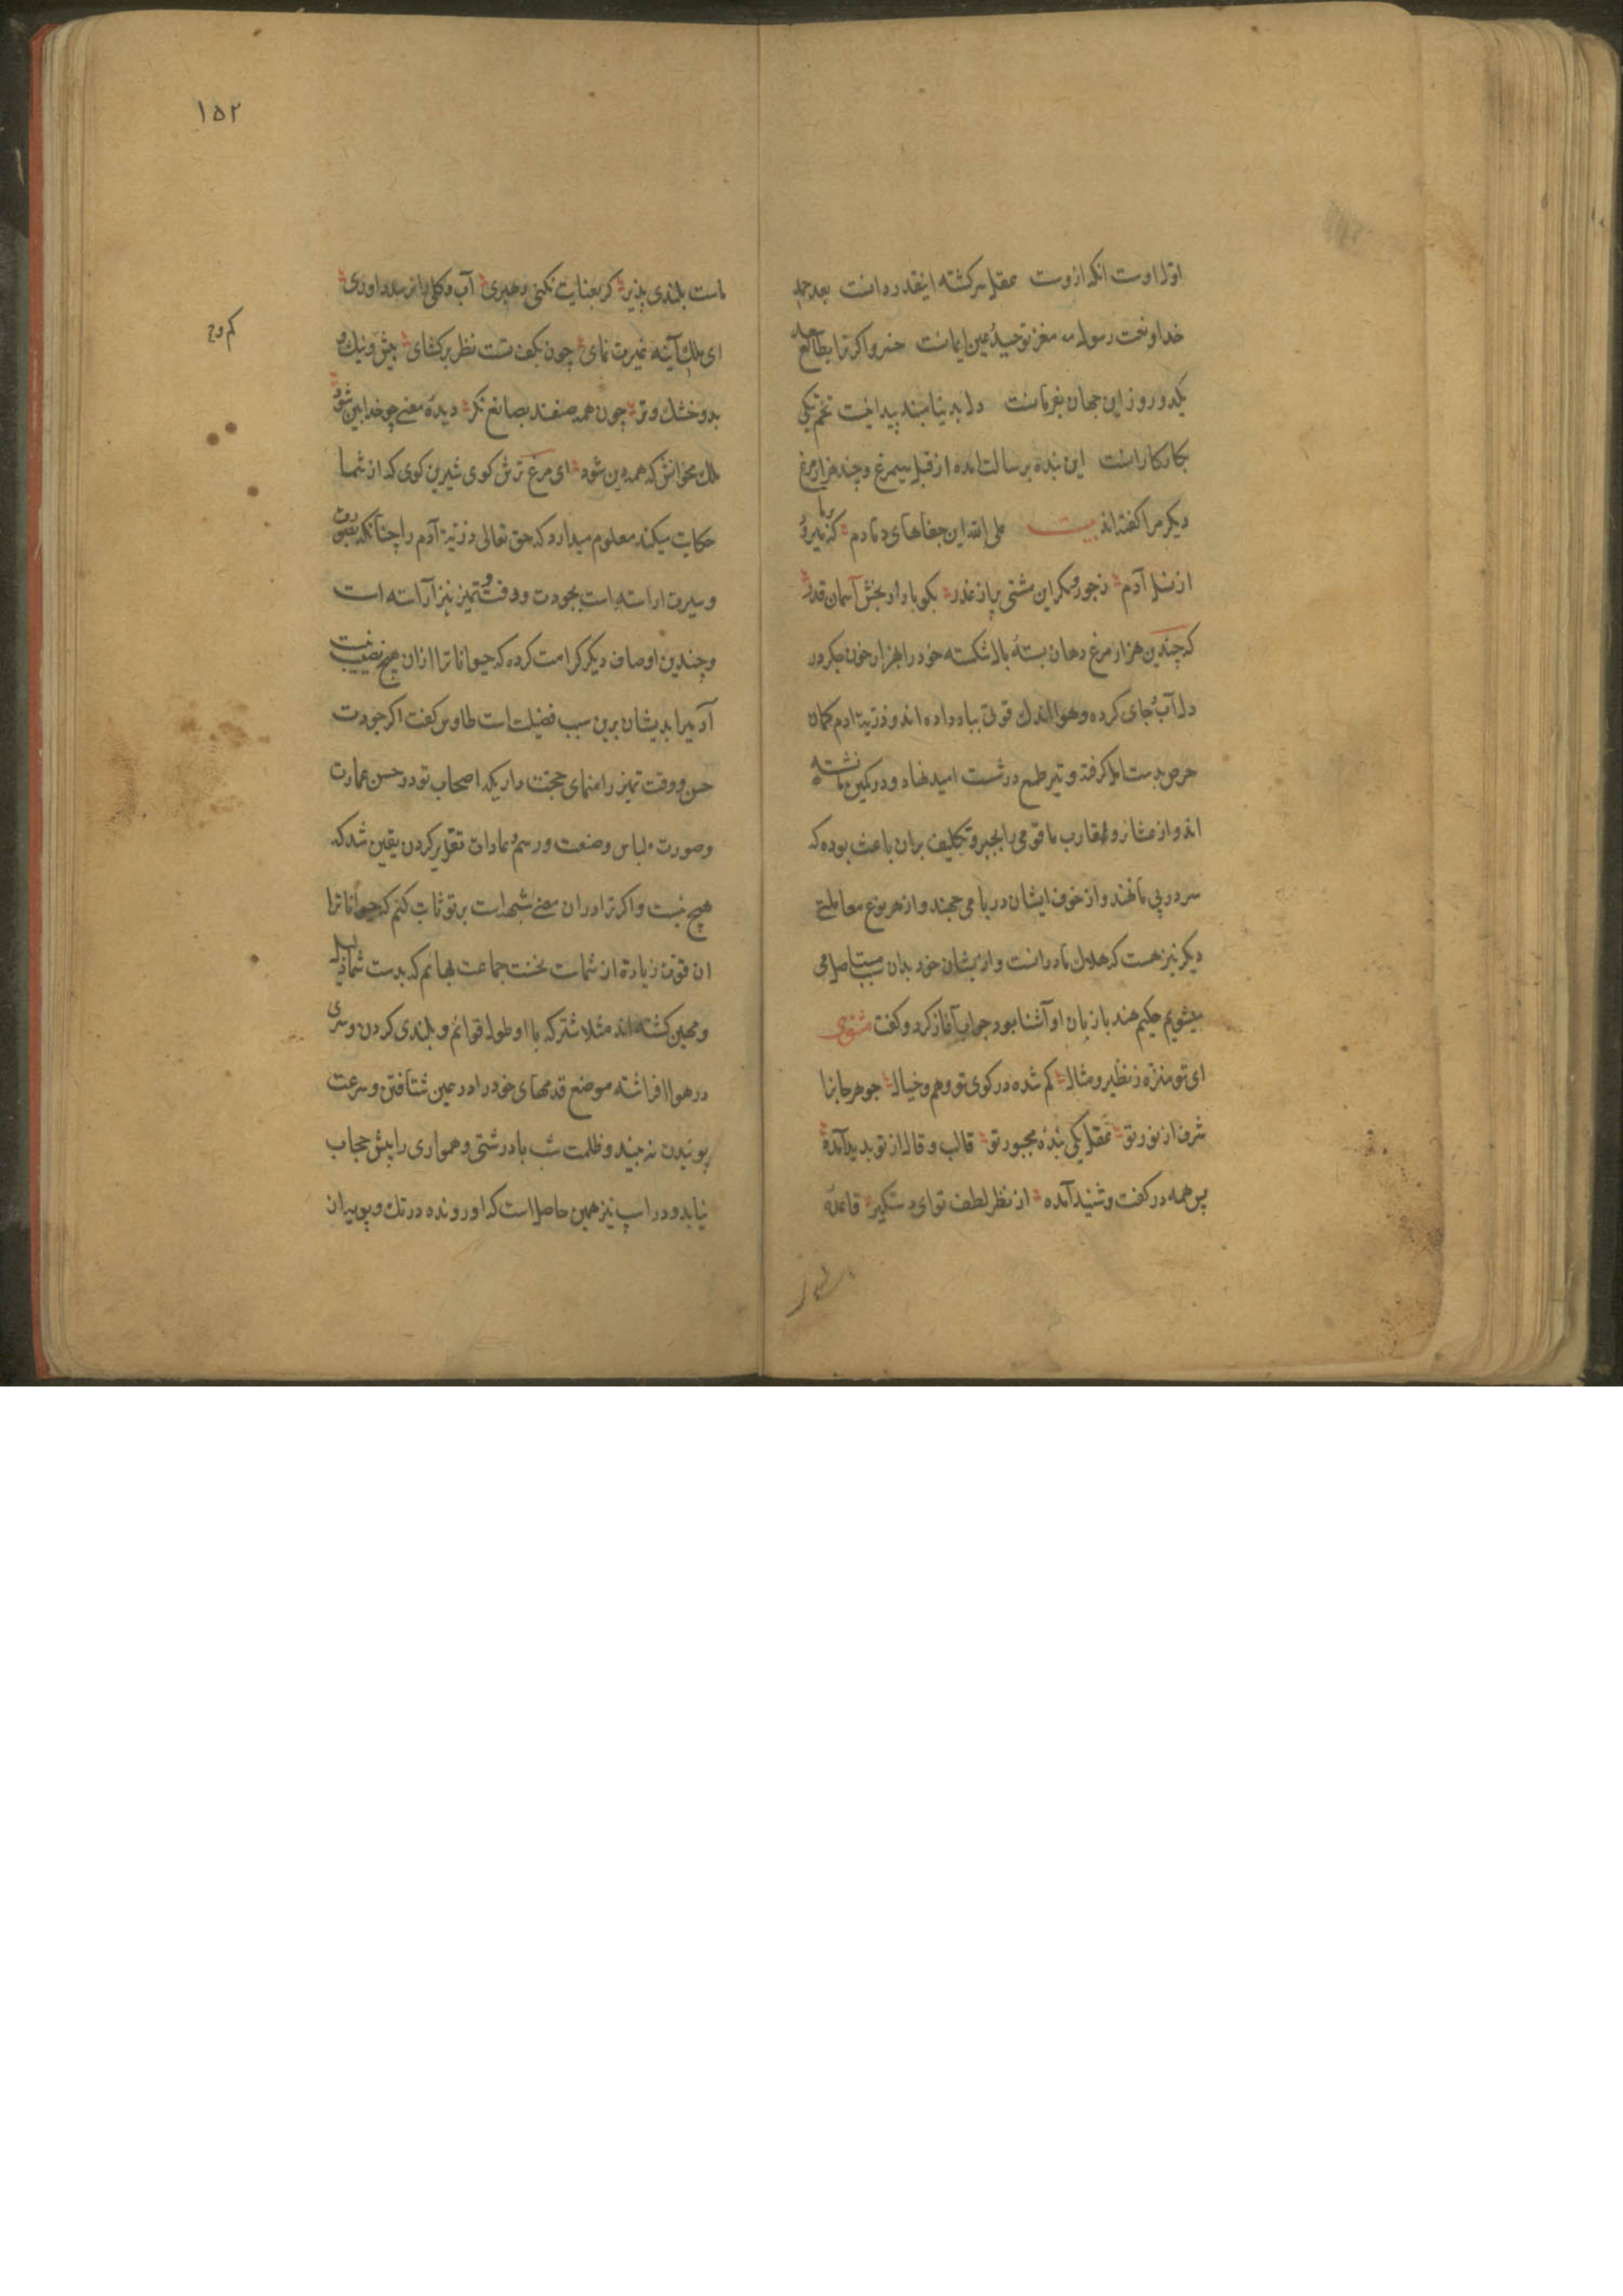 اول اوست انکه ازوست عقل سرکشته اینقدر دانست بعد حمد
خدا و نعت رسول مغز توحید عین ایمانست خسروا کر ترا بطالع سعد
یکدو روز این جهان بفرمانست دل بدنیا مبند تخم نیکی
بکار کارانست این بنده برسالت امده از قبل سیمرغ و چند هزار مرغ
دیکر مرا کفته اند بیت علی الله این جفاهای دمادم که بر ما میرود
از نسل آدم ز جور و مکر این مشتی پر از غدر بکو با داور بخش آسمان قدر
که چندین هزار مرغ دهان بستهٔ بال شکسته خود را بهزار خون جکر در
دل آب جای کرده و هوا اندک قوتی بباد داده اند و ذریة ادم کمان
حرص بدست امل کرفته و تیر طمع در شست امید نهاد و در کمین ما نشسته
اند و از عشایر و اقارب ما قومی را بجبر و تکلیف بران باعث بوده که
سر در پی ما نهند و از خوف ایشان در با می جهند و از هر نوع معاملتی
دیکر نیز هست که هلاک ما درانست و از بشان خود بدان سبب مستاصل می
میشویم حکیم هند با زبان او آشنا بود جواب آغاز کرد و کفت مثنوی
ای تو منزه ز نظیر و مثال کم شده در کوی تو وهم و خیال جوهر جانرا
شرف از نور تو عقل یکی بندهٔ مجبور تو قالب و قال از تو بدید آمده
پس همه در کفت و شنید آمده از نظر لطف تو ای دستکیر قاعدهٔ
۱۵۲
ماست بلندی پذیر کر بعنایت نکنی رهبری آب و کل را نرسد داوری
ای ملک آینه غیرت نمای چون بکف تست نظر برکشای بیش و نیک و
بد و خشک و تر چون همه صنفند بصانع نکر دیدهٔ معنی چو خدا بین شود
ملک مخوانش که همه دین شود ای مرغ ترش کوی شیرین کوی که از شما
حکایت میکند معلوم میدارد که حق تعالی ذریة آدم را چنانکه بصورت
و سیرت اراسته است بجودت و دقت و تمیز نیز آراسته است
و چندین اوصاف دیکر کرامت کرده که حیواناترا ازان هیچ نصیب نیست
آدمیرا بدیشان برین سبب فضیلت است طاوس کفت اکر جودت
حس و وقت تمیز را منهای حجت داریکه اصحاب تو در حسن عمارت
و صورت و لباس و صنعت و رسم و عادات تقریر کردن یقین شد که
هیچ نیست و اکر ترا دران معنی شبهه است بر تو ثابت کنم که حیواناترا
ان قوت زیادة از شماست نخست جماعت بهائم که بدست شما ذلیل
و مهین کشته اند مثلا شتر که با او طول قوائم و بلندی کردن و سری
در هوا افراشته موضع قدمهای خود را در عین شتافتن و سرعت
پوئیدن نه بیند و ظلمت شب با درشتی و همواری را پیش حجاب
نیابد و در اسپ نیز همین حاصل است که او رونده در تک و پوییدن